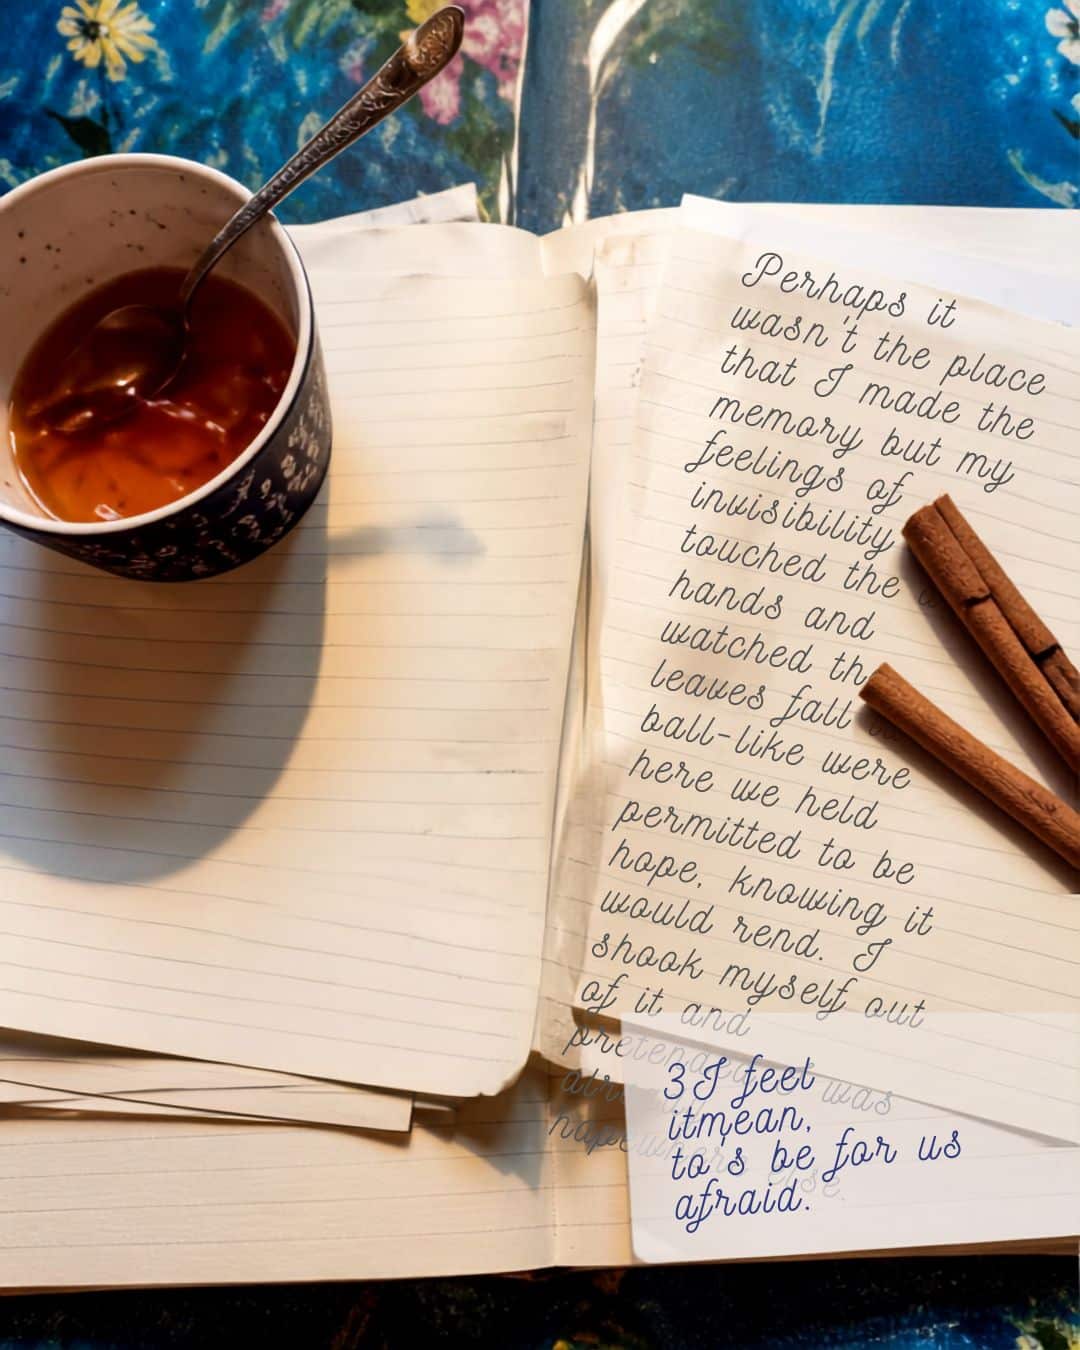 Perhaps it
wasn't the place
that I made the
memory but my
feelings of
invisibility
touched the
hands and
watched
leaves fall
ball-like were
here we held
permitted to be
hope, knowing it
would rend. I
shook myself out
of it and
was
else.
3 I feel
itmean,
to's be for us
afraid.